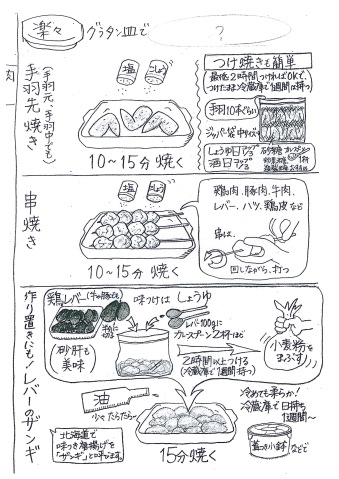 楽々
グラタン皿で
?
手羽先焼き
(手羽元、手羽中でも)
塩
こしょう
10~15分焼く
つけ焼きも簡単
最低2時間つければOKで、
つけたまま冷蔵庫で1週間は持つ
手羽10本ぐらい
ジッパー袋中サイズ
しょうゆ日
酒日
串焼き
塩
こしょう
10~15分焼く
鶏肉、豚肉、牛肉、
レバー、ハツ、鶏皮など
串は、
回しながら、打つ
作り置きにも!レバーのザンギ
鶏レバー
半分に切る
砂肝も
美味
味つけは しょうゆ
レバー100gに
カレースプーン2杯ほど
2時間以上つける
(冷蔵庫で1週間持つ)
小麦粉を
まぶす
油
たらたら~
北海道で
味つき唐揚げを
「ザンギ」と呼びます。
15分焼く
冷めても柔らか!
冷蔵庫で日持ち
1週間~
蓋つき小鉢
などで